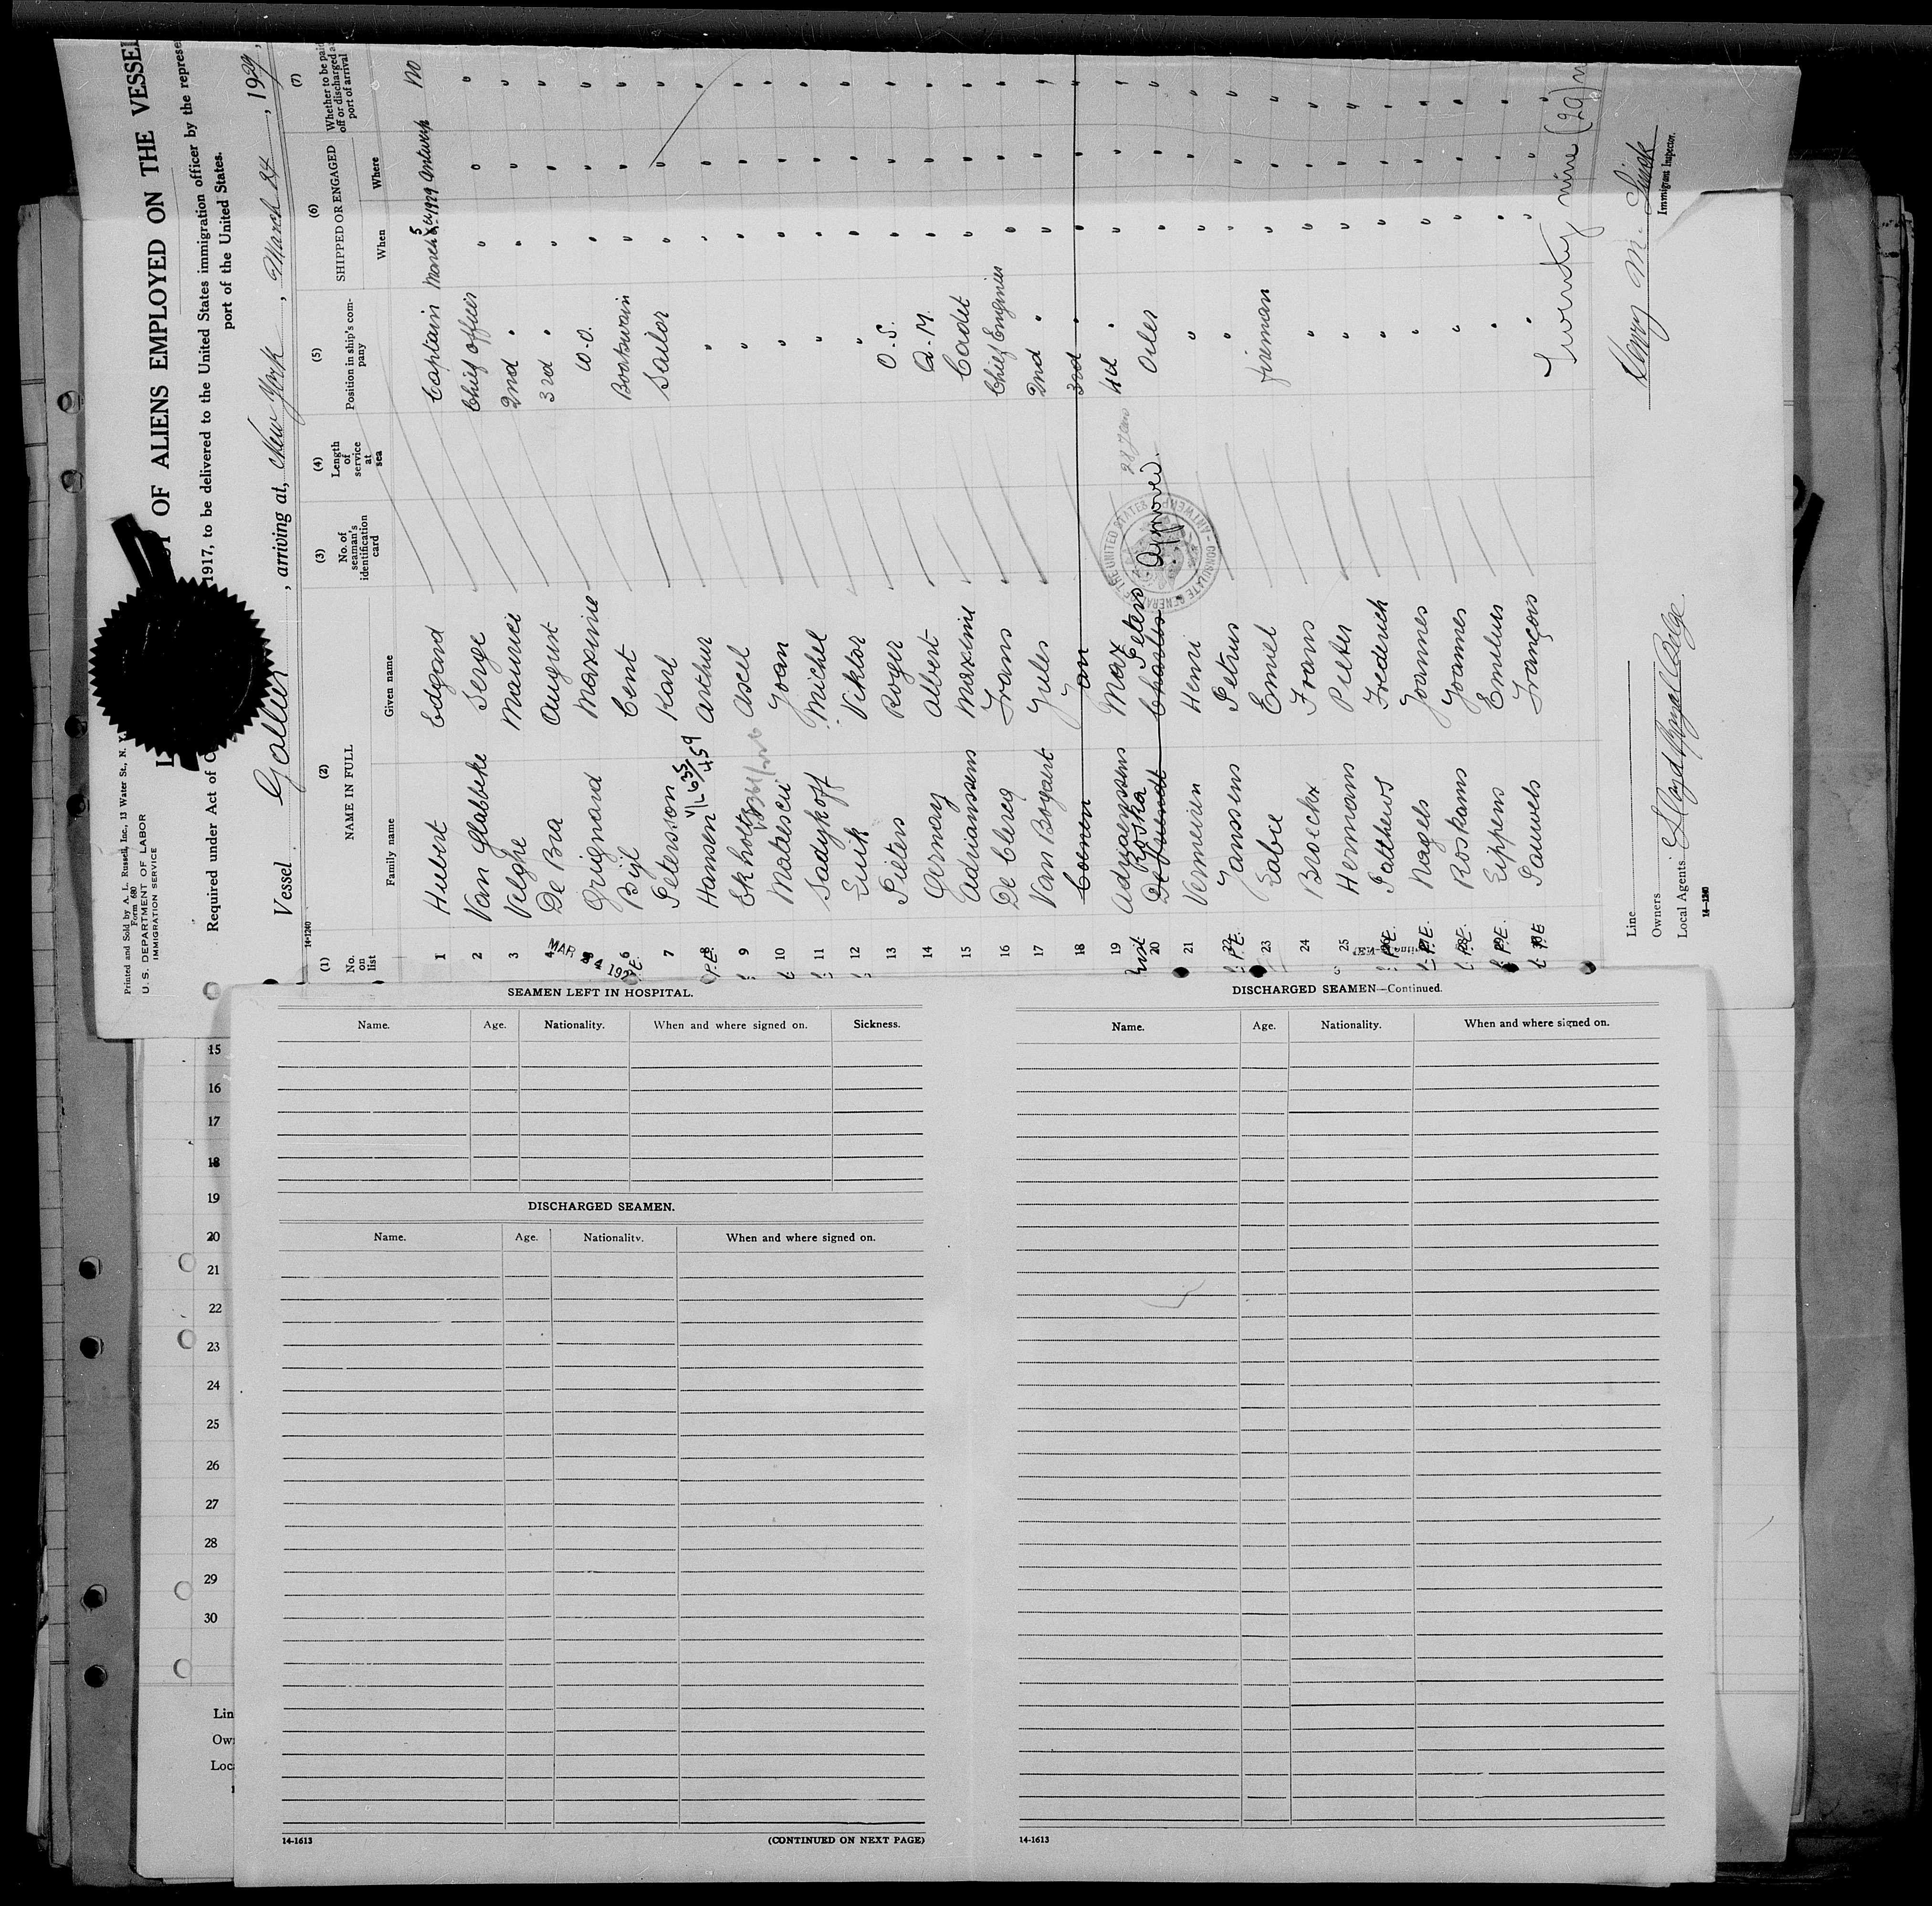 Printed and Sold by A. L. Russell, Inc., 13 Water St., N. Y.
Form 680
U. S. DEPARTMENT OF LABOR
IMMIGRATION SERVICE
OF ALIENS EMPLOYED ON THE VESSEL
Required under Act of
1917, to be delivered to the United States immigration officer by the represe
port of the United States.
Vessel Gallier, arriving at, New York, March 24, 1929,
14-1240
(1) (2) (3) (4) (5) (6) (7)
No. on list NAME IN FULL No. of seaman's identification card Length of service at sea Position in ship's company SHIPPED OR ENGAGED Whether to be paid off or discharged at port of arrival
Family name Given name When Where
1 Hubert Edgard Captain March 5 1929 Antwerp no
2 Van Glabbeke Serge Chief officer " " "
3 Velghe Maurice 2nd " " " "
4 De Bra August 3rd " " " "
5 Grignard Maxime W.O. " " "
6 Bijl Cent Boatswain " " "
7 Petersson Karl Sailor " " "
8 Hansen Arthur " " " "
9 Ekholtz Axel " " " "
10 Mateescu Joan " " " "
11 Sadykoff Michel " " " "
12 Luik Viktor " " " "
13 Pieters Roger O.S. " " "
14 Gernay Albert Q.M. " " "
15 Adriaenssens Maximi Cadet " " "
16 De Clercq Frans Chief Engineer " " "
17 Van Bogaert Jules 2nd " " " "
18 Coenen Jan 3rd " " " "
19 Adriaenssens Max 4th " " " "
28 years
Roska Peters
20 De Smendt Charles Oiler " " "
Approved.
CONSULATE GENERAL OF THE UNITED STATES ANTWERP
21 Vermeiren Henri " " " "
22 Janssens Petrus " " " "
23 Labie Emiel fireman " " "
24 Broeckx Frans " " " "
25 Hermans Pieter " " " "
26 Patthews Frederick " " " "
27 Nagels Joannes " " " "
28 Roskams Joannes " " " "
29 Lippens Emilius " " " "
30 Pauwels François " " " "
MAR 24 192
P.E.
Twenty nine (29)
Line
Owners
Local Agents Lloyd Royal Belge
14-1240
Henry M.
Immigrant Inspector.
15
16
17
18
19
20
21
22
23
24
25
26
27
28
29
30
Lin
Own
Loca
SEAMEN LEFT IN HOSPITAL.
Name. Age. Nationality. When and where signed on. Sickness.
DISCHARGED SEAMEN.
Name. Age. Nationality. When and where signed on.
14-1613 (CONTINUED ON NEXT PAGE)
DISCHARGED SEAMEN—Continued.
Name. Age. Nationality. When and where signed on.
14-1613